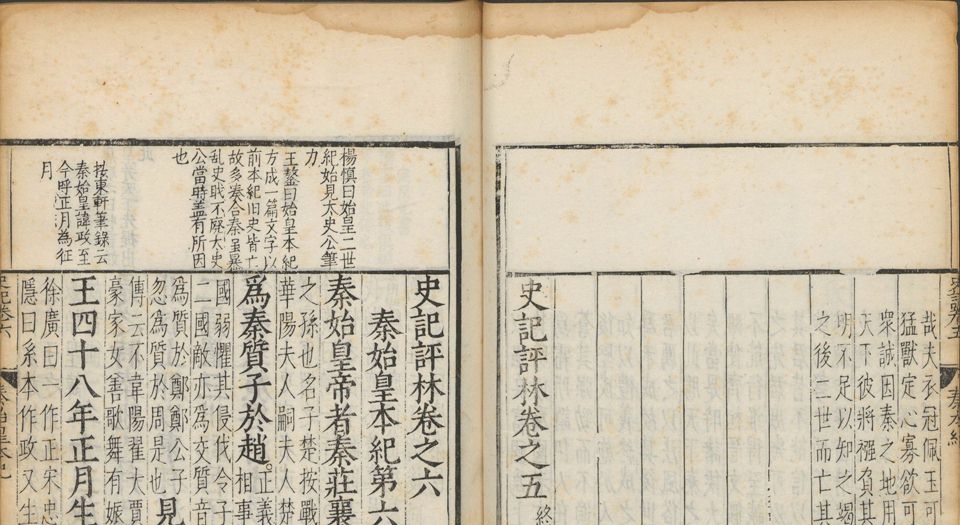 哉夫衣冠佩玉可
猛獸定心寡欲可
衆誠因秦之地用
夫下彼將襁負其
明不足以知之竭
之後二世而亡其
史記評林卷之五
終
楊慎曰始皇二世
紀始見太史公筆
力
王鏊曰始皇本紀
方成一篇文字以
前本紀旧史皆亡
故多湊合秦虽暴
乱史戝不廢太史
公當時盖有所因
也
按東軒筆錄云
秦始皇諱政至
今呼正月為征
月
史記評林卷之六
秦始皇本紀第六
秦始皇帝者秦莊襄
之孫也名子楚按戰
華陽夫人嗣夫人楚
為秦質子於趙。正義
相事
國弱懼其侵伐令子
二國敵亦為交質音
為質於鄭鄭公子
忽為質於周是也
見
傳云不韋陽翟大賈
豪家女善歌舞有娠
王四十八年正月生
徐廣曰一作正宋忠
隱曰系本作政又生